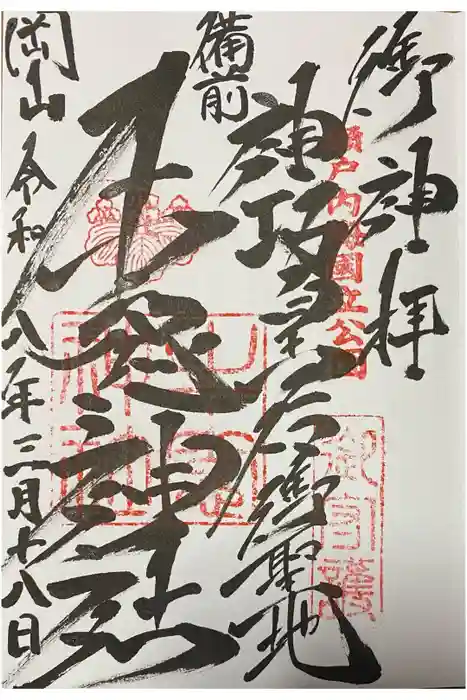 御神拝
瀬戸内海國立公園
御守護
神功皇后御聖地
備前
牛窓神社
岡山 令和八年三月十八日